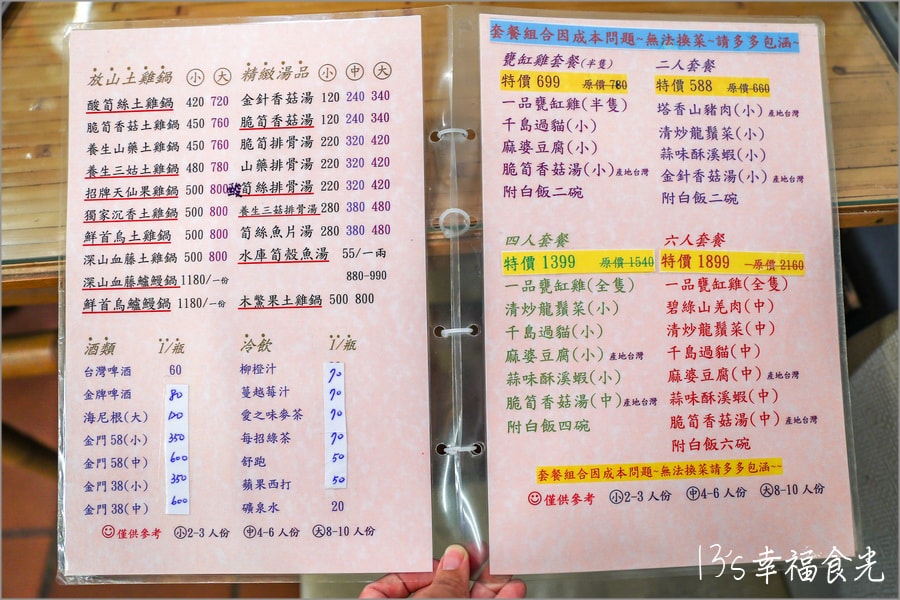 放山土雞鍋 小 大
酸筍絲土雞鍋 420 720
脆筍香菇土雞鍋 450 760
養生山藥土雞鍋 450 760
養生三菇土雞鍋 480 780
招牌天仙果雞鍋 500 800
獨家沉香土雞鍋 500 800
鮮首烏土雞鍋 500 800
深山血藤土雞鍋 500 800
深山血藤鱸鰻鍋 1180/一份
鮮首烏鱸鰻鍋 1180/一份
精緻湯品 小 中 大
金針香菇湯 120 240 340
脆筍香菇湯 120 240 340
脆筍排骨湯 220 320 420
山藥排骨湯 220 320 420
酸筍絲排骨湯 220 320 420
養生三菇排骨湯 280 380 480
筍絲魚片湯 280 380 480
水庫筍殼魚湯 55/一兩
880-990
木鱉果土雞鍋 500 800
酒類 1/瓶
台灣啤酒 60
金牌啤酒 80
海尼根(大) 100
金門58(小) 350
金門58(中) 600
金門38(小) 350
金門38(中) 600
冷飲 1/瓶
柳橙汁 70
蔓越莓汁 70
愛之味麥茶 70
每招綠茶 70
舒跑 50
蘋果西打 50
礦泉水 20
僅供參考 小2-3人份 中4-6人份 大8-10人份
套餐組合因成本問題~無法換菜~請多多包涵~
甕缸雞套餐(半隻)
特價 699 原價 780
一品甕缸雞(半隻)
千島過貓(小)
麻婆豆腐(小)
脆筍香菇湯(小)產地台灣
附白飯二碗
二人套餐
特價 588 原價 660
塔香山豬肉(小)產地台灣
清炒龍鬚菜(小)
蒜味酥溪蝦(小)
金針香菇湯(小)產地台灣
附白飯二碗
四人套餐
特價 1399 原價 1540
一品甕缸雞(全隻)
清炒龍鬚菜(小)
千島過貓(小)
麻婆豆腐(小)產地台灣
蒜味酥溪蝦(小)
脆筍香菇湯(中)產地台灣
附白飯四碗
六人套餐
特價 1899 原價 2160
一品甕缸雞(全隻)
碧綠山羌肉(中)
清炒龍鬚菜(中)
千島過貓(中)
麻婆豆腐(中)產地台灣
蒜味酥溪蝦(中)
脆筍香菇湯(中)產地台灣
附白飯六碗
套餐組合因成本問題~無法換菜請多多包涵~~
僅供參考 小2-3人份 中4-6人份 大8-10人份
13's幸福食光